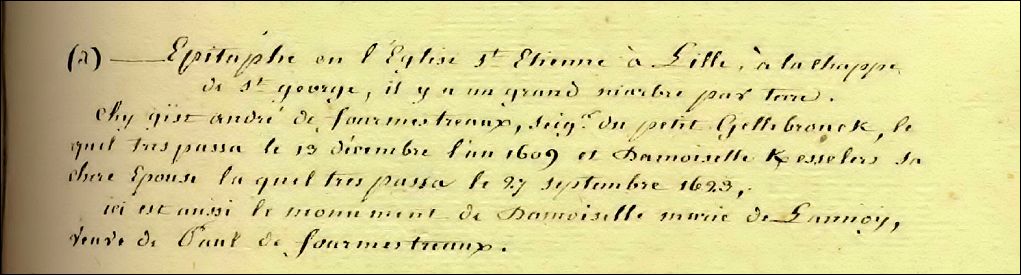 (a) — Epitaphe en l'Eglise St Etienne à Lille, à la chappe
de St george, il y a un grand marbre par terre.
Chy gist andré de fourmestreaux, seigr. du petit Gellebrouck, le
quil trespassa le 13 décembre l'an 1609 et Damoiselle Kesselers sa
chere Epouse la quel trespassa le 27 septembre 1623,
ici est aussi le monument de Damoiselle marie de Lannoy,
veuve de Paul de fourmestreaux.